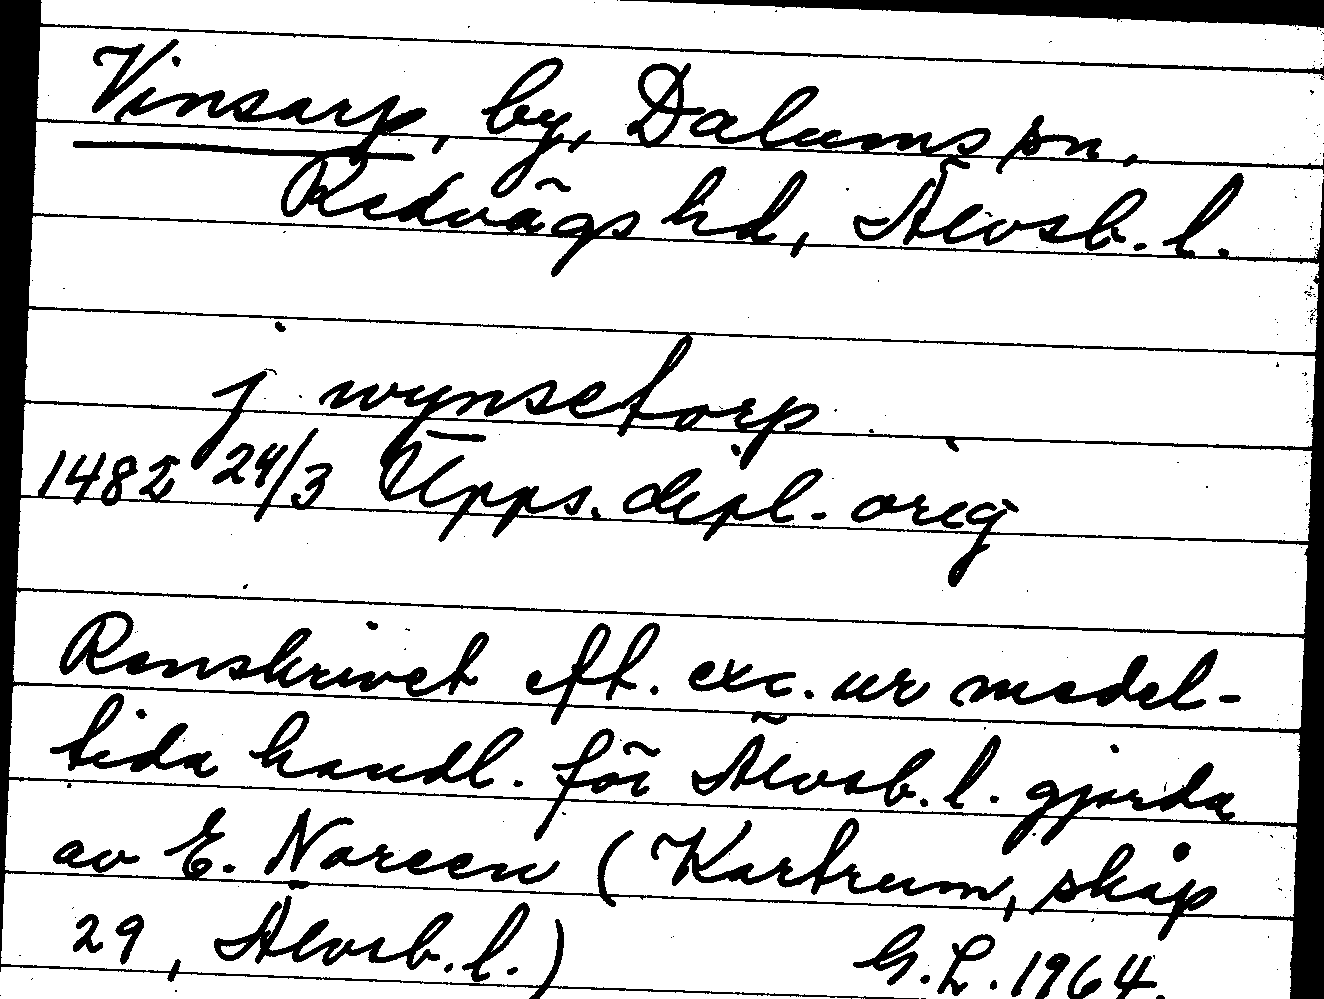 Vinsarp, by, Dalums sn,
Redvägs hd, Älvsb. l.
j wynsetorp
1482 24/3 Upps. dipl. orig
Renskrivet eft. exc. ur medel-
tida handl. för Älvsb. l. gjorda
av E. Noreen (Kartrum, skåp
29, Älvsb. l.) G. L. 1964.